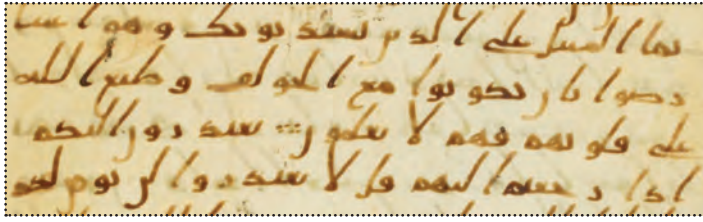 نما السبيل على الذين يستذنونك وهم اغنيا
رضوا بان يكونوا مع الخولف وطبع الله
على قلوبهم فهم لا يعلمون يعتذرون اليكم
اذا رجعتم اليهم قل لا تعتذروا لن نومن لكم